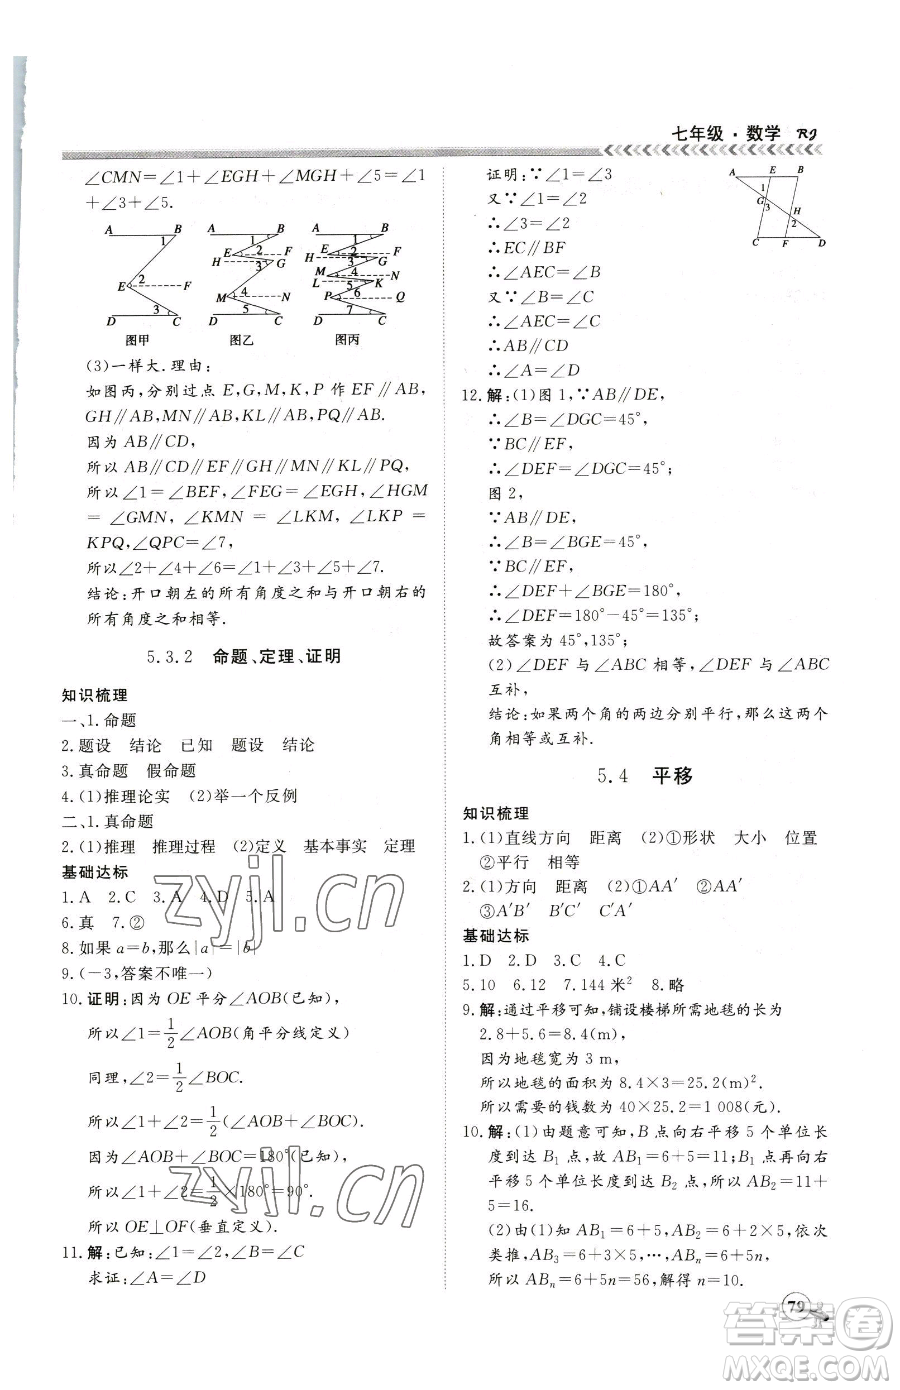 七年级·数学 RJ
∠CMN=∠1+∠EGH+∠MGH+∠5=∠1
+∠3+∠5.
A B 1 E 2 F 3 D C 图甲
A B 1 E 2 F H 3 G M 4 N 5 D C 图乙
A B 1 E 2 F H 3 G M 4 N L 5 K P 6 Q 7 D C 图丙
(3)一样大.理由:
如图丙,分别过点 E,G,M,K,P 作 EF∥AB,
GH∥AB,MN∥AB,KL∥AB,PQ∥AB.
因为 AB∥CD,
所以 AB∥CD∥EF∥GH∥MN∥KL∥PQ,
所以∠1=∠BEF,∠FEG=∠EGH,∠HGM
=∠GMN,∠KMN=∠LKM,∠LKP=∠
KPQ,∠QPC=∠7,
所以∠2+∠4+∠6=∠1+∠3+∠5+∠7.
结论:开口朝左的所有角度之和与开口朝右的
所有角度之和相等.
5.3.2 命题、定理、证明
知识梳理
一、1.命题
2.题设 结论 已知 题设 结论
3.真命题 假命题
4.(1)推理论实 (2)举一个反例
二、1.真命题
2.(1)推理 推理过程 (2)定义 基本事实 定理
基础达标
1.A 2.C 3.A 4.D 5.A
6.真 7.②
8.如果 a=b,那么|a|=|b|
9.(-3,答案不唯一)
10.证明:因为 OE 平分∠AOB(已知),
所以∠1=1/2∠AOB(角平分线定义)
同理,∠2=1/2∠BOC.
∠1+∠2=1/2(∠AOB+∠BOC).
因为∠AOB+∠BOC=180°,
所以∠1+∠2=1/2×180°=90°.
所以 OE⊥OF(垂直定义).
11.解:已知:∠1=∠2,∠B=∠C
求证:∠A=∠D
证明:∵∠1=∠3
又∵∠1=∠2
∴∠3=∠2
∴EC∥BF
∴∠AEC=∠B
又∵∠B=∠C
∴∠AEC=∠C
∴AB∥CD
∴∠A=∠D
A E B 1 G 3 H 2 C F D
12.解:(1)图 1,∵AB∥DE,
∴∠B=∠DGC=45°,
∵BC∥EF,
∴∠DEF=∠DGC=45°;
图 2,
∵AB∥DE,
∴∠B=∠BGE=45°,
∵BC∥EF,
∴∠DEF+∠BGE=180°,
∴∠DEF=180°-45°=135°;
故答案为 45°,135°;
(2)∠DEF 与∠ABC 相等,∠DEF 与∠ABC
互补,
结论:如果两个角的两边分别平行,那么这两个
角相等或互补.
5.4 平移
知识梳理
1.(1)直线方向 距离 (2)①形状 大小 位置
②平行 相等
2.(1)方向 距离 (2)①AA′ ②AA′
③A′B′ B′C′ A′C′
基础达标
1.D 2.D 3.C 4.C
5.10 6.12 7.144 米² 8.略
9.解:通过平移可知,铺设楼梯所需地毯的长为
2.8+5.6=8.4(m)
因为地毯宽为 3 m,
所以地毯的面积为 8.4×3=25.2(m)²
所以需要的钱数为 40×25.2=1 008(元).
10.解:(1)由题意可知,B 点向右平移 5 个单位长
度到达 B₁ 点,故 AB₁=6+5=11,B₁ 点向右
平移 5 个单位长度到达 B₂ 点,所以 AB₂=11+
5=16.
(2)由(1)知 AB₁=6+5,AB₂=6+2×5,依次
类推,AB₃=6+3×5,…,ABₙ=6+5n,
所以 ABₙ=6+5n=56,解得 n=10.
79
zyjl.cn
zyjl.cn
答案圈
MXQE.COM